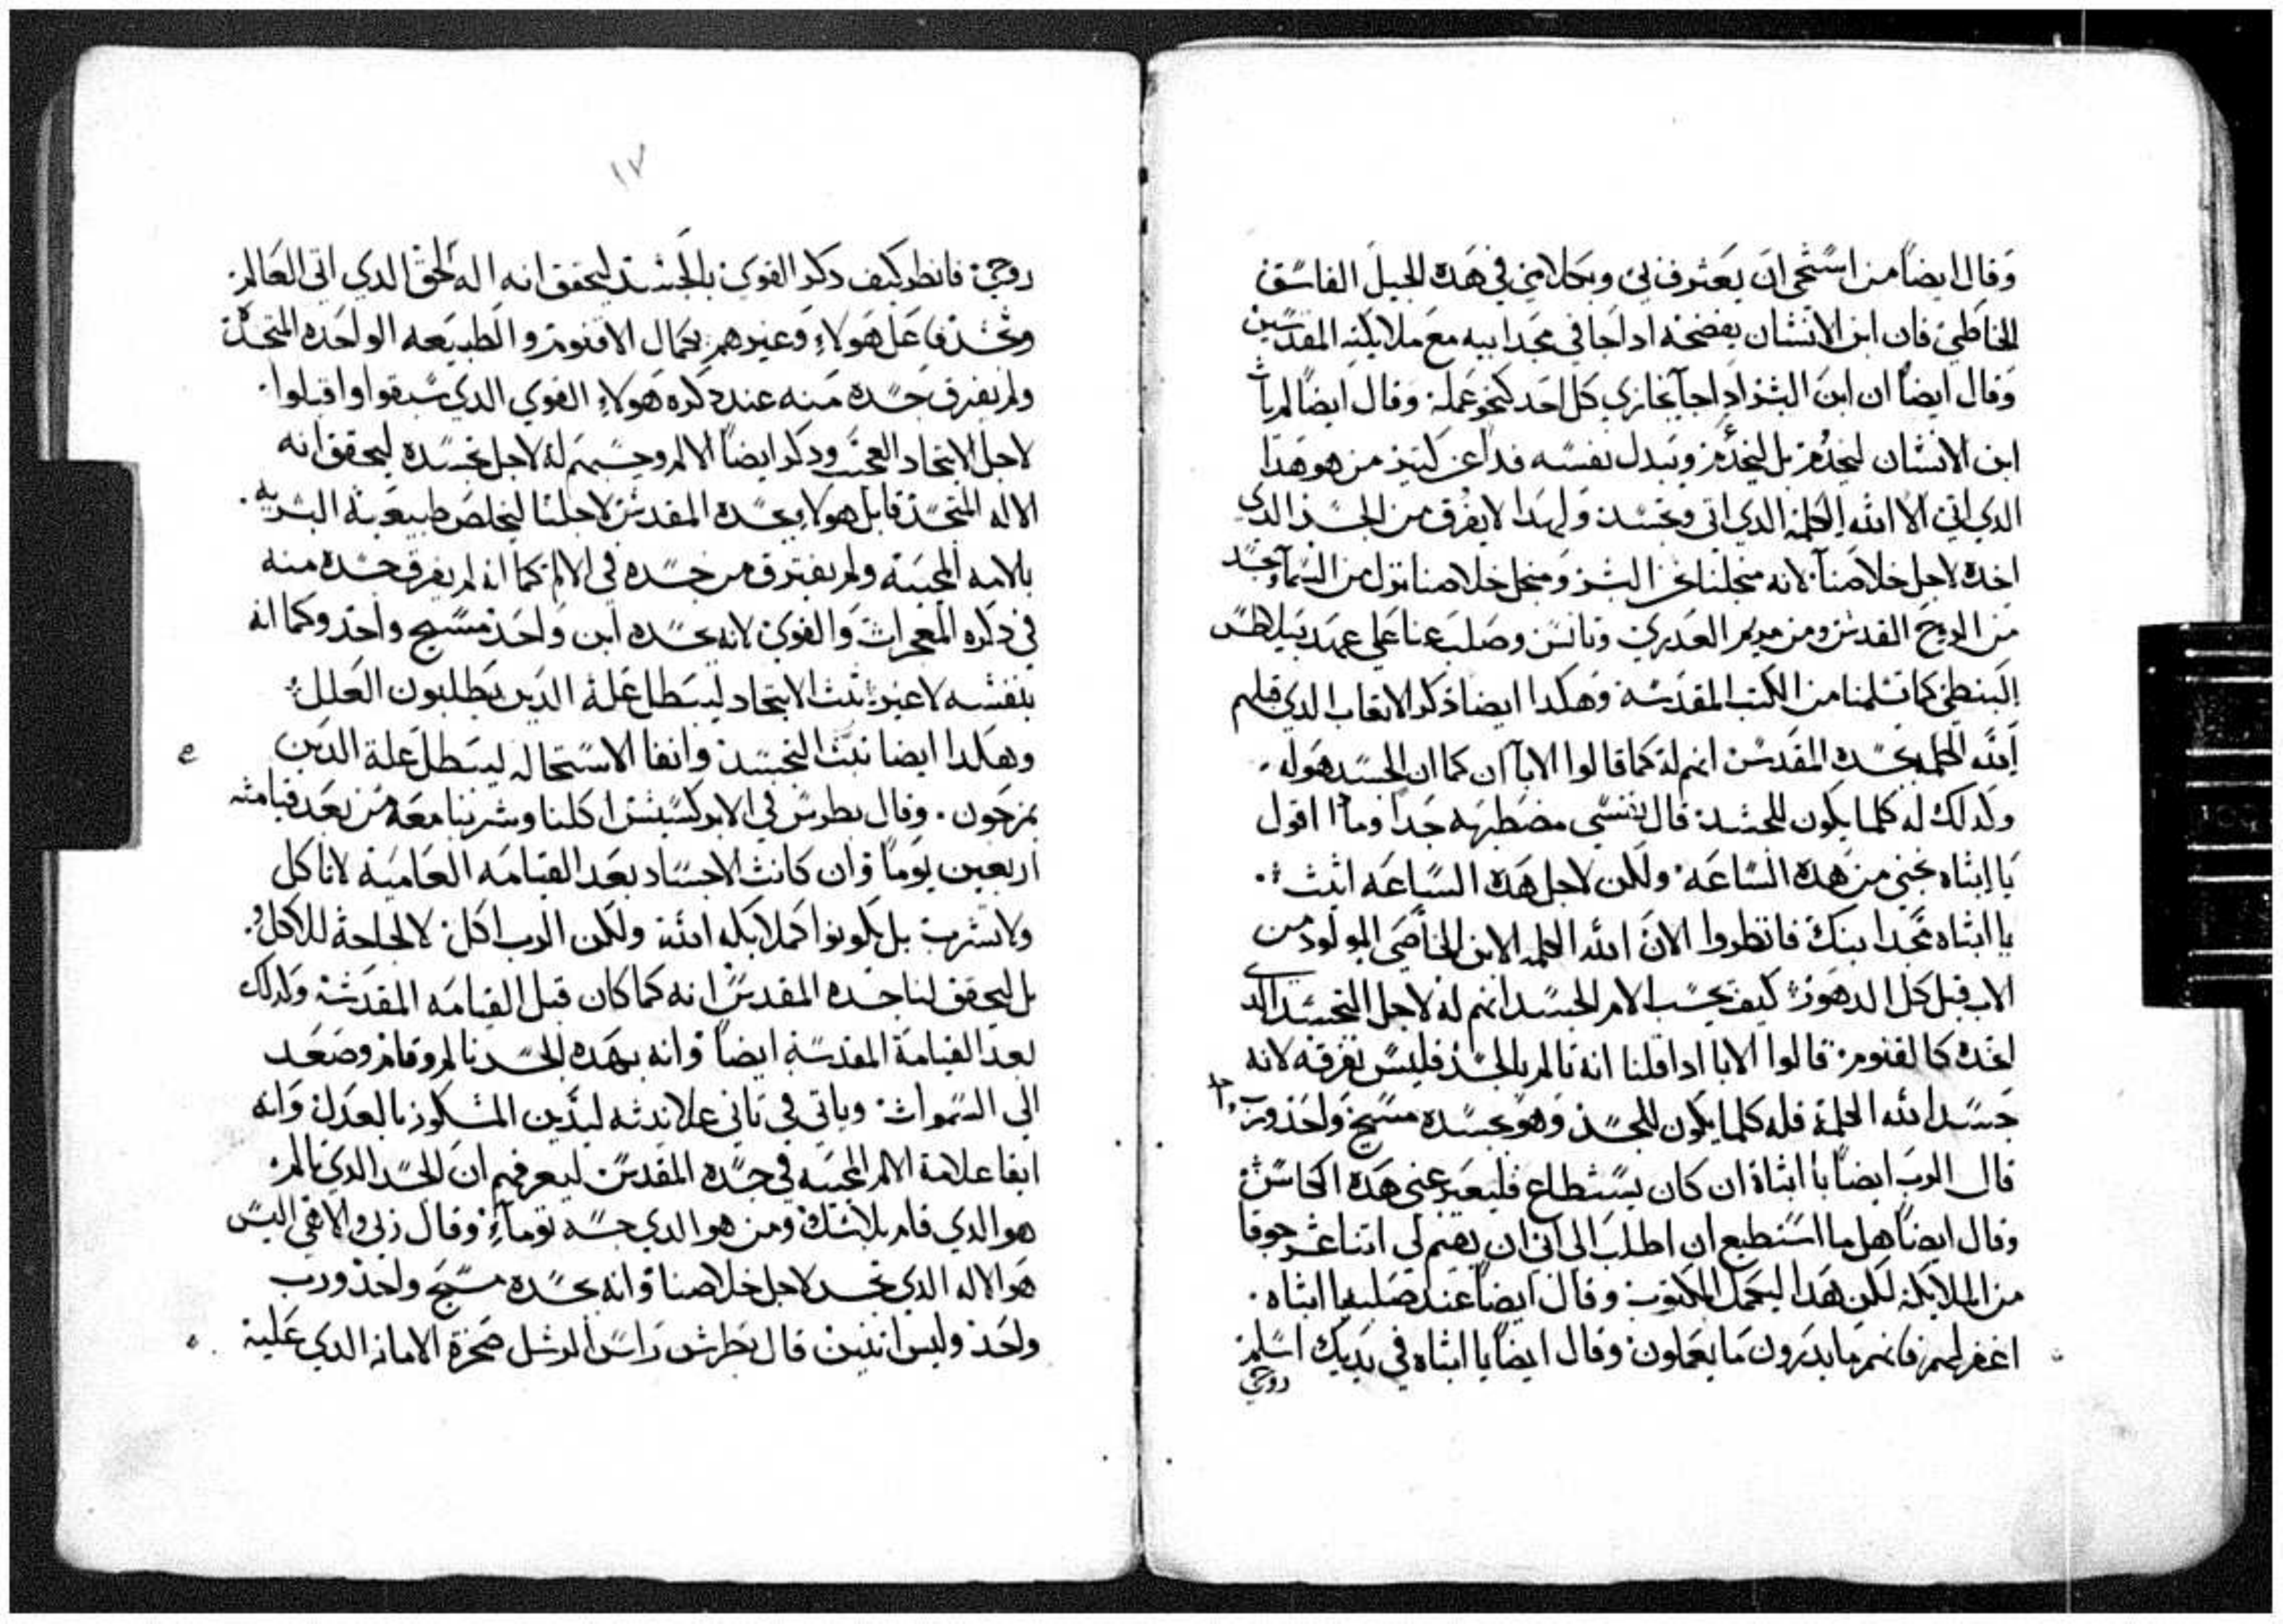 وقال ايضا من استحى ان يعترف بي وبكلامي في هذه الجيل الفاسق
الخاطي فان ابن الانسان يفضحه ادا جا في مجد ابيه مع ملايكته المقدسين
وقال ايضا ان ابن البشر ادا جا يجازي كل احد كنحو عمله وقال ايضا لم يات
ابن الانسان ليخدم بل ليخدم ويبدل نفسه فدا عن كتير من هو هدا
الدي اتى الا الله الكلمه الدي اتى وتجسد ولهدا لا يفرق من الجسد الدي
اخده لاجل خلاصنا لانه منجلنا نحن البشر ومنجل خلاصنا نزل من السما وتجسد
من الروح القدس ومن مريم العدري وتانس وصلب عنا على عهد بيلاطس
البنطي كما تسلمنا من الكتب المقدسه وهكدا ايضا ذكر الاتعاب الدي قبلهم
الله الكلمه بجسده المقدس انهم له كما قالوا الابا ان كما ان الجسد هو له
وكدلك له كلما يكون للجسد قال نفسي مضطربه جدا وما اقول
يا ابتاه نجني من هده الساعه ولكن لاجل هده الساعه اتيت
يا ابتاه مجد ابنك فانظروا الان الله الكلمه الابن الخاصي المولود من
الاب قبل كل الدهور كيف يحسب الام الجسد انهم له لاجل التجسد الدي
اخده كالقنوم قالوا الابا ادا قلنا انه تالم بالجسد فليس نفرقه لانه
جسد الله الكلمة فله كلما يكون للجسد وهو بجسده مسيح واحد ورب واحد
قال الرب ايضا يا ابتاه ان كان يستطاع فليعبر عني هده الكاس
وقال ايضا هل ما استطيع ان اطلب الى ابي ان يقيم لي اتنا عشر جوقا
من الملايكه لكن هدا ليكمل المكتوب وقال ايضا عند صلبه يا ابتاه
اغفر لهم فانهم ما يدرون ما يعملون وقال ايضا يا ابتاه في يديك اسلم
روحي
١٧
روحي فانظر كيف دكر القوي بالجسد ليحقق انه اله الحق الدي اتى العالم
وتجسد فاعل هولاء وغيرهم بكمال الاقنوم والطبيعه الواحده المتحدة
ولم يفرق جسده منه عند دكره هولاء القوي الدي سبقوا وا قبلوا
لاجل الاتحاد العجيب ودكر ايضا الالم وحسبهم له لاجل تجسده ليحقق انه
الاله المتجسد قابل هولاء بجسده المقدس لاجلنا ليخلص طبيعتة البشريه
بالامه المحييه ولم يفترق من جسده في الالم كما انه لم يفرق جسده منه
في دكره المعجزات والقوي لانه بجسده ابن واحد مسيح واحد وكما انه
بنفسه لاغير تبت الاتحاد ليبطل علة الدين يطلبون العلل
وهكدا ايضا تبت التجسد وانفا الاستحاله ليبطل علة الدين
يمزجون وقال بطرس في الابركسيس اكلنا وشربنا معه من بعد قيامته
اربعين يوما وان كانت الاجساد بعد القيامه العاميه لا تاكل
ولا تشرب بل يكونوا كملايكه الله ولكن الرب اكل لا لحاجة للاكل
بل ليحقق لنا جسده المقدس انه كما كان قبل القيامه المقدسه وكدلك
بعد القيامة المقدسه ايضا وانه بهده الجسد تالم وقام وصعد
الى السموات وياتي في تاني علانيته ليدين المسكونه بالعدل وانه
ابقا علامة الالم المحييه في جسده المقدس ليعرفهم ان الجسد الدي تالم
هو الدي قام بلا شك ومن هو الدي جسه توماء وقال ربي والاهي اليس
هو الاله الدي تجسد لاجل خلاصنا وانه بجسده مسيح واحد ورب
واحد وليس اتنين قال بطرس راس الرسل صخرة الامانه الدي عليه